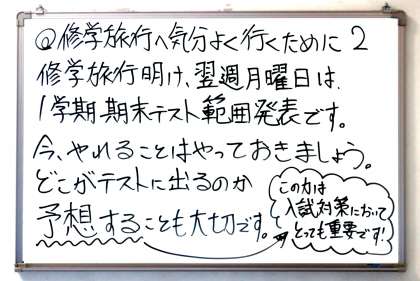 @修学旅行へ気分よく行くために2
修学旅行明け、翌週月曜日は、
1学期期末テスト範囲発表です。
今、やれることはやっておきましょう。
どこがテストに出るのか
予想することも大切です。
この力は
入試対策において
とっても重要です!